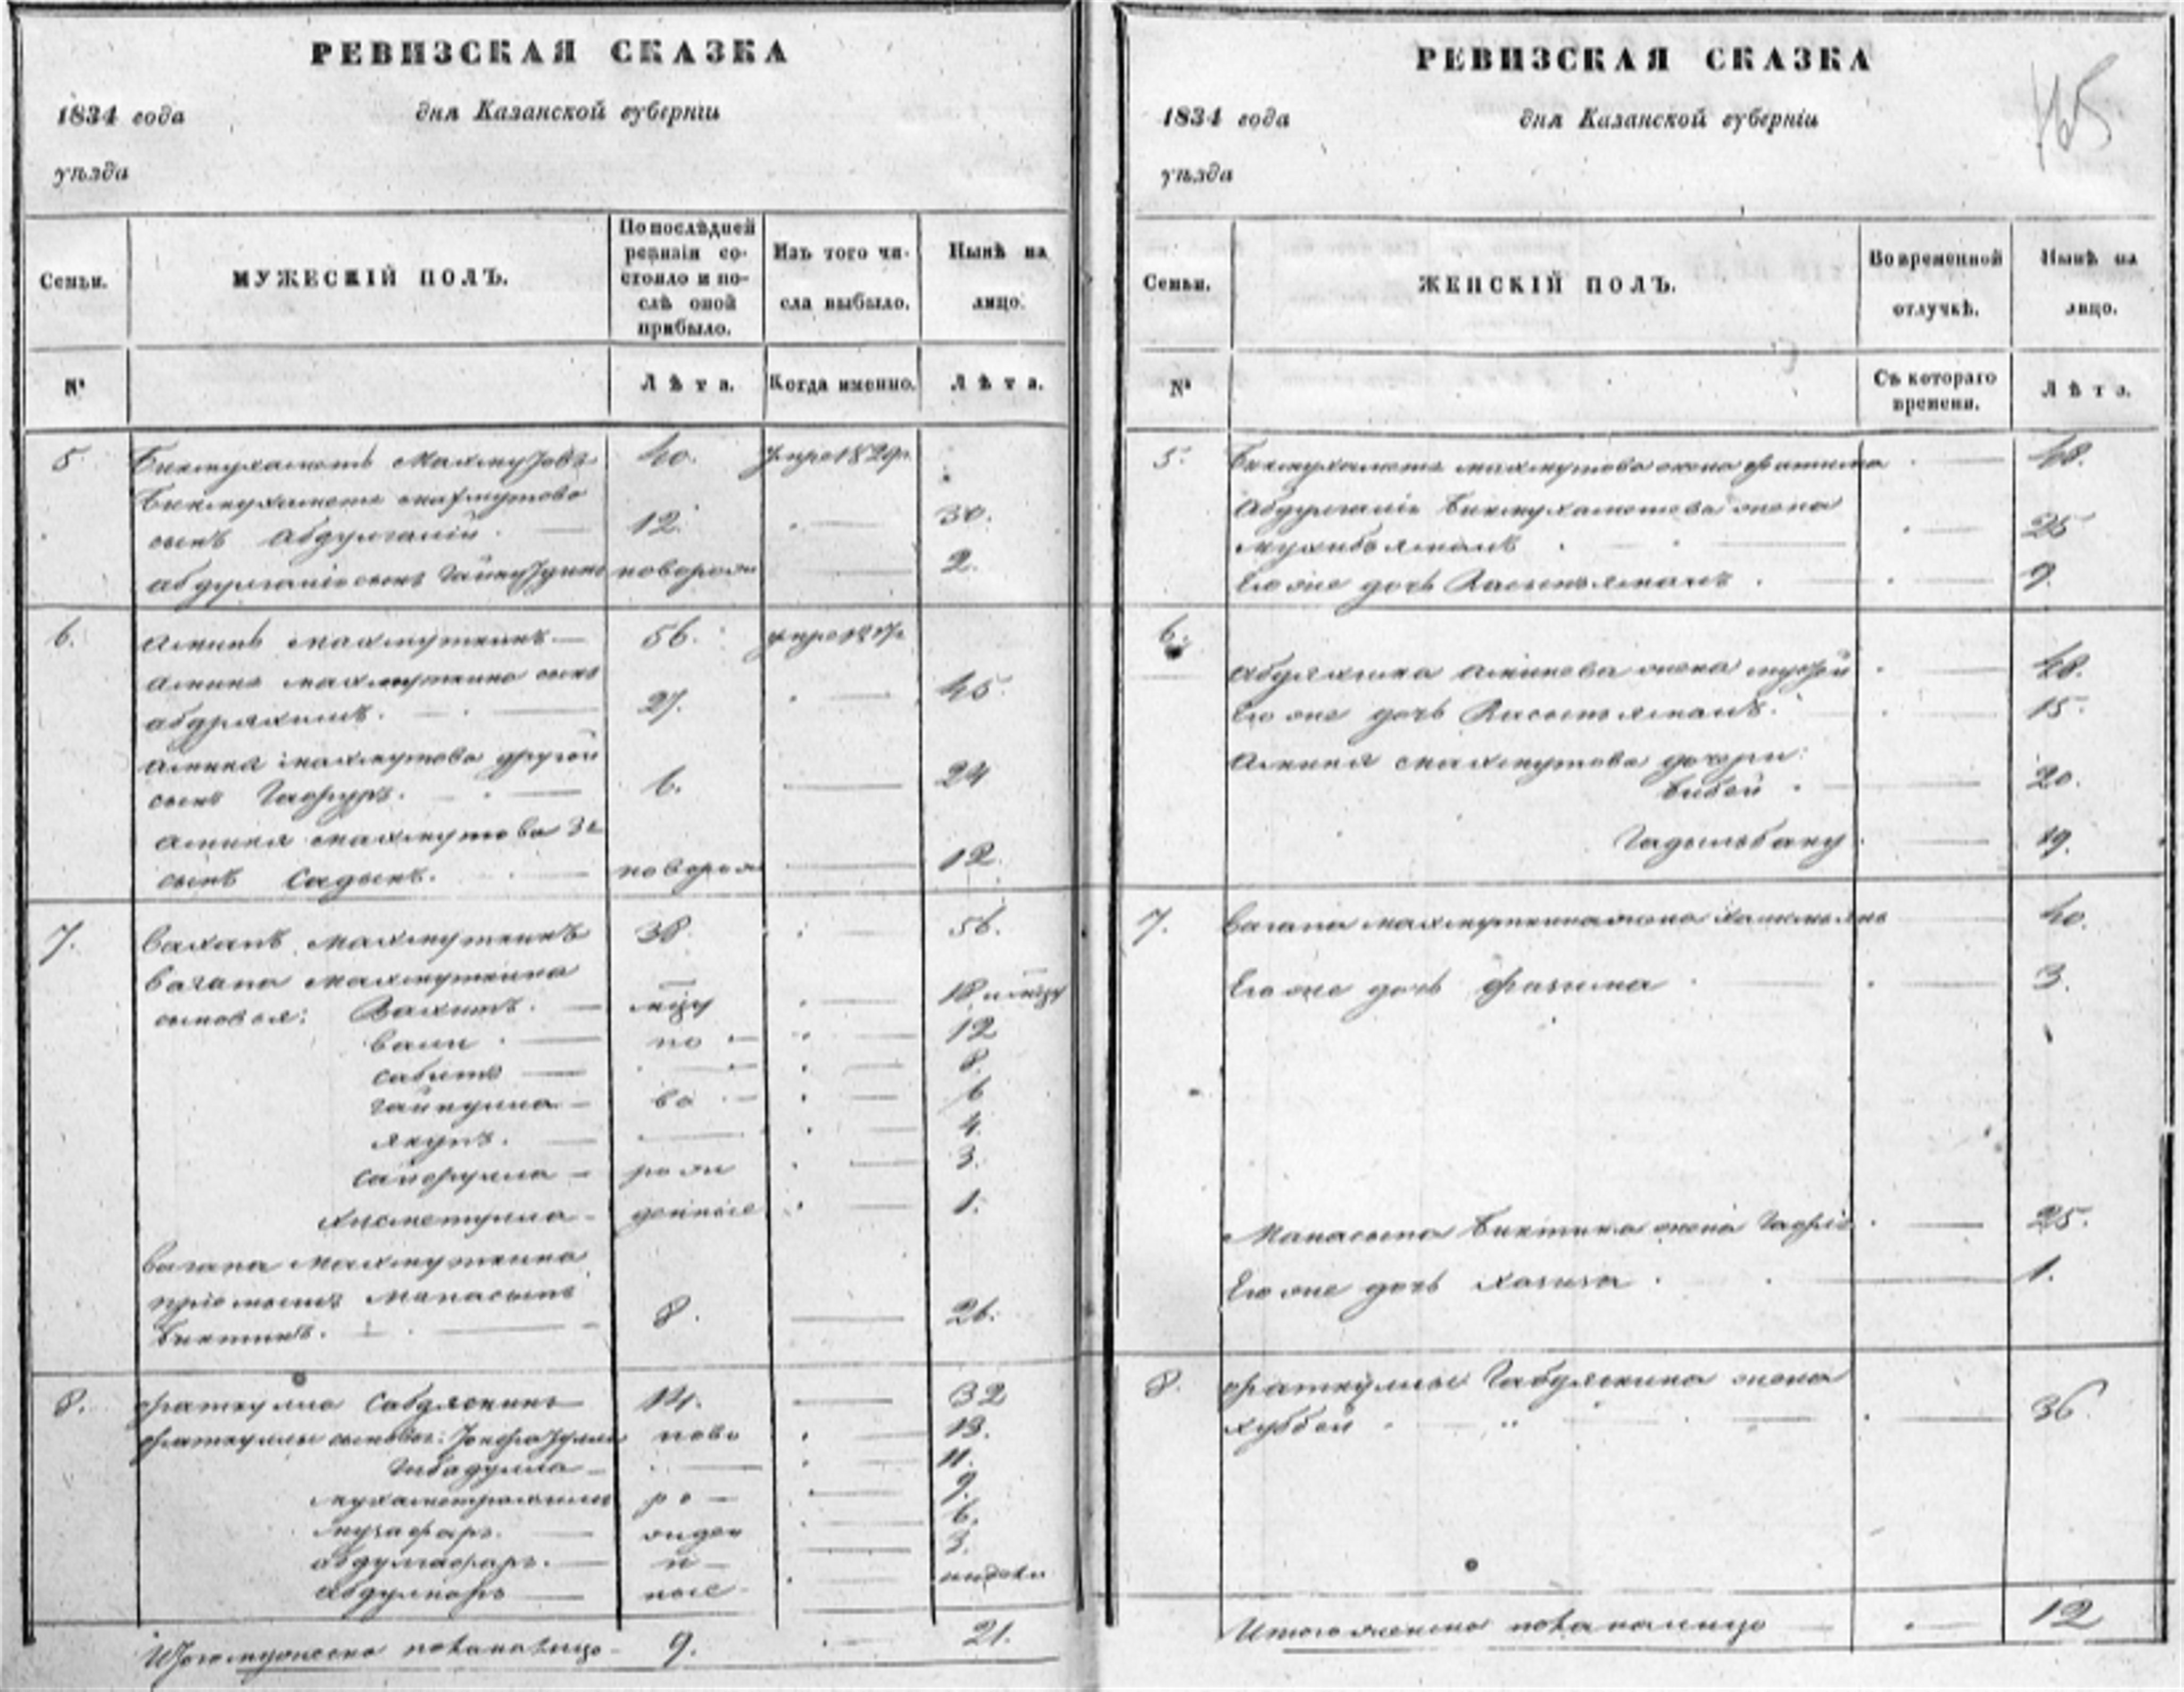 РЕВИЗСКАЯ СКАЗКА
1834 года дня Казанской губерніи
уѣзда
Семьи.
МУЖЕСКІЙ ПОЛЪ.
По послѣдней ревизіи состояло и послѣ оной прибыло.
Изъ того числа выбыло.
Нынѣ на лицо.
№
Лѣта.
Когда именно.
Лѣта.
5 Бикмухаметъ Махмутовъ 40. умре 1829г.
Бикмухамета махмутова
сынъ Абдулганій 12. 30.
Абдулганія сынъ новорож 2.
6. Аминь махмуткинъ 56. умре
Аминя махмуткина сынъ
абдряхимъ. 27. 45
Аминя махмутова другой
сынъ Гафуръ. 6. 24
Аминя махмутова 3й
сынъ Садыкъ. новорож 12.
7. Вахапъ махмуткинъ 38. 56.
Вагапа махмуткина
сыновья: Вахитъ.
Вали но 12
Сабитъ 8.
Гайнулла во 6
Якупъ. 4.
Сайфулла рож 3.
Хисметулла денные 1.
Вагапа махмуткина
пріемышъ Манасыпъ
Биктинъ. 8. 26.
8. Фаткулла Габдякинъ 14. 32
Фаткуллы сыновья: ново 13.
Гибадулла 11.
Мухаметрахимъ ро 9.
Музафаръ. жден 6.
Абдулгафаръ. н 3.
Абдулнаръ ные
Итого мужеска пола налицо 9. 21.
РЕВИЗСКАЯ СКАЗКА
165
1834 года дня Казанской губерніи
уѣзда
Семьи.
ЖЕНСКІЙ ПОЛЪ.
Во временной отлучкѣ.
Нынѣ на лицо.
№
Съ котораго времени.
Лѣта.
5. Бикмухамета махмутова жена фатима 48.
Абдулганія Бикмухаметова жена
мухибзямалъ 25
Его же дочь 9.
6. Абдряхима Аминева жена 48.
Его же дочь 15.
Аминя махмутова дочери:
Бибей 20.
Гадыльбану 19.
7. Вагапа махмуткина жена 40.
Его же дочь Фазима 3.
Манасыпа Биктина жена 25.
Его же дочь Хазиза 1.
8. Фаткуллы Габдякина жена
Хуббей 36.
Итого женска пола налицо 12